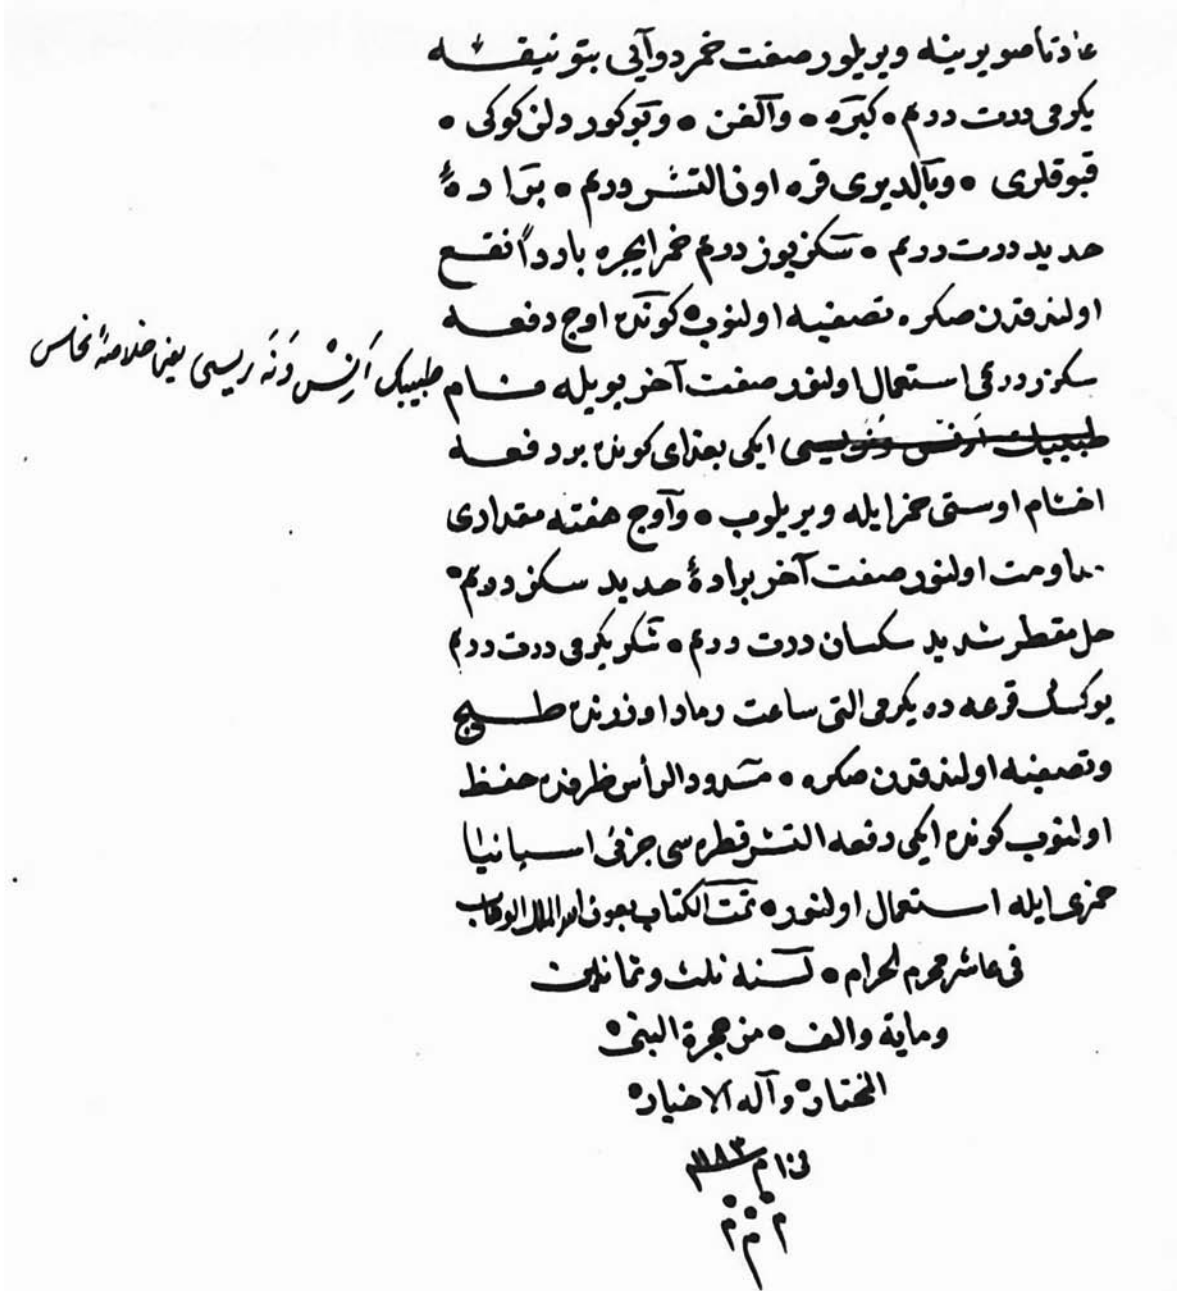 عادتا صو يرينه ويريلور صفت خمر دوآیی بتونيقـــه
يكرمی درت درهم • كبره • وآلفن • وقوكورد دلن كوكی •
قبوقلری • وبالديری قره اون التشر درهم • برادۀ
حديد درت درهم • سكزيوز درهم خمر ايچره باردا نقـــع
اولندقدن صكره تصفيه اولنوب كونده اوچ دفعـــه
سكزر درهمی استعمال اولنور صفت آخر بويله مـــام طبيبك اَرِنسْ وَنَه ريسی يعنی خلاصۀ نحاس
طبيبك ارنس ونريسی ايكی بغدای كونده بر دفعـــه
اخشام اوستی خمر ايله ويريلوب • وآوچ هفته مقداری
مداومت اولنور صفت آخر برادۀ حديد سكز درهم •
خل مقطر شديد سكسان درت درهم • شكر يكرمی درت درهم
يوكسك قرعه ده يكرمی التی ساعت رماد اوزرنده طـــبخ
وتصفيه اولندقدن صكره • مسدود الرأس ظرفده حفـــظ
اولنوب كونده ايكی دفعه التشر قطره سی جزئی اســـپانيا
خمری ايله استعمال اولنور • تمت الكتاب بعون الله الملك الوهاب
فی عاشر محرم الحرام • لسنه ثلث وثمانين
وماية والف • من هجرة النبی •
المختار • وآله الاخيار •
فی ١٠ م ١١٨٣
م م م